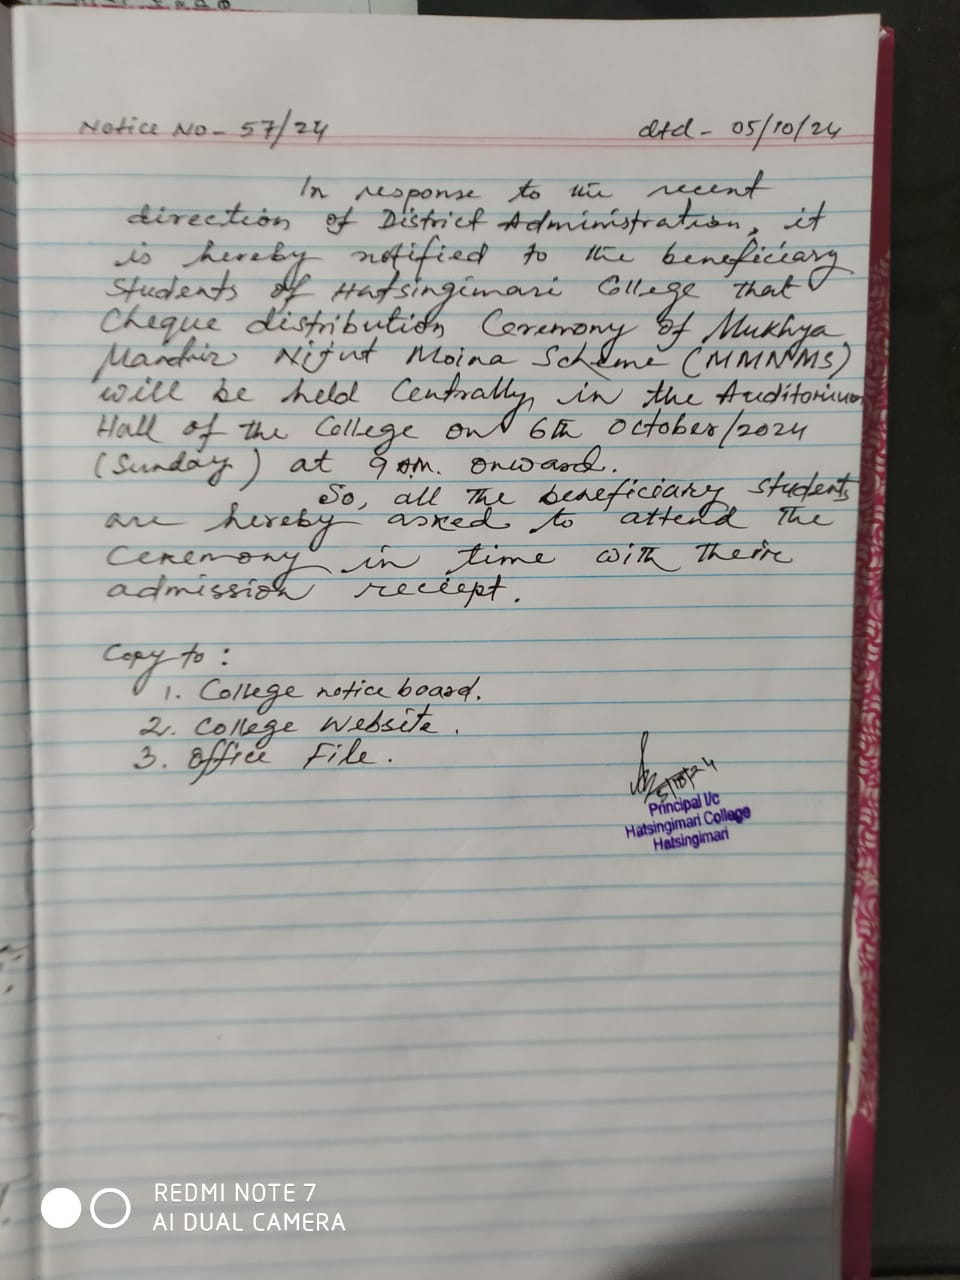 Notice No- 57/24 dtd- 05/10/24
In response to the recent
direction of District Administration, it
is hereby notified to the beneficiary
Students of Hatsingimari College that
Cheque distribution Ceremony of Mukhya
Mantrir Nijut Moina Scheme (MMNMS)
will be held Centrally in the Auditorium
Hall of the College on 6th October/2024
(Sunday) at 9 am. onward.
So, all the beneficiary students
are hereby asked to attend the
Ceremony in time with their
admission receipt.
Copy to :
1. College notice board.
2. College Website.
3. Office File.
5/10/24
Principal I/c
Hatsingimari College
Hatsingimari
REDMI NOTE 7
AI DUAL CAMERA